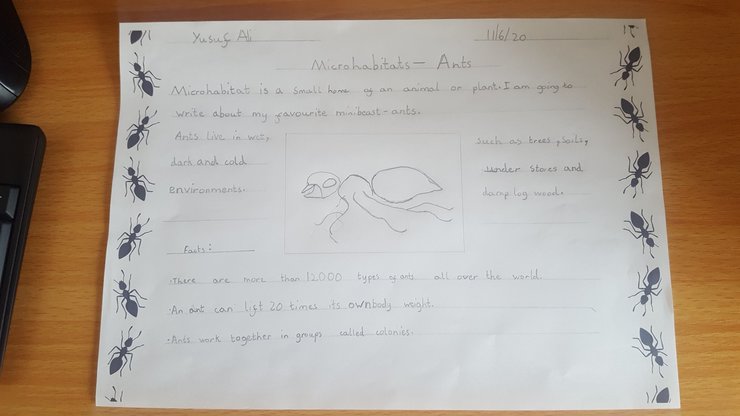 Yusuf Ali
11/6/20
Microhabitats - Ants
Microhabitat is a small home of an animal or plant. I am going to
write about my favourite minibeast - ants.
Ants live in wet,
dark and cold
environments.
such as trees, soils,
under stores and
damp log wood.
Facts:
· There are more than 12000 types of ants all over the world.
· An ant can lift 20 times its own body weight.
· Ants work together in groups called colonies.